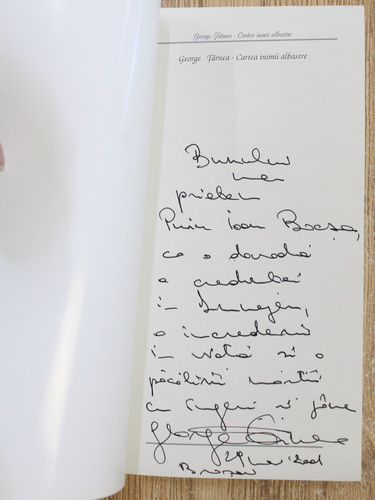 George Țârnea - Cartea inimii albastre
George Țârnea - Cartea inimii albastre
Bunului
meu
prieten
Puiu Ioan Bocșa,
ca o dovadă
a credinței
în Dumnezeu,
a încrederii
în viață și a
păcălirii morții
cu îngeri și pâine
George Țârnea
29 mai 2001
Brezoi